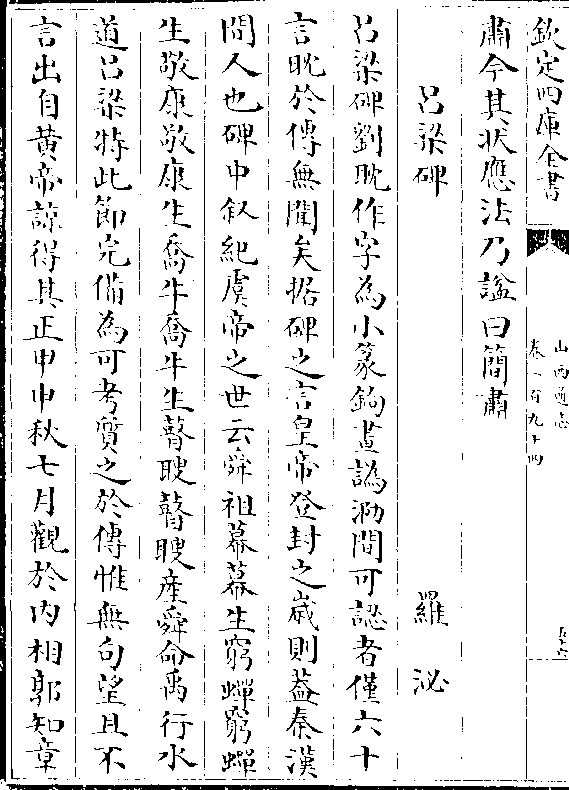 欽定四庫全書
山西通志
卷一百九十四
五十六
肅今其状應法乃諡曰簡肅
呂梁碑　羅泌
呂梁碑劉耽作字為小篆鉤畫譌泐間可認者僅六十
言耽於傳無聞矣据碑之言皇帝登封之嵗則葢秦漢
間人也碑中叙紀虞帝之世云舜祖幕幕生窮蟬窮蟬
生敬康敬康生喬牛喬牛生瞽瞍瞽瞍産舜命禹行水
道呂梁特此節完備為可考質之於傳惟無句望且不
言出自黄帝諒得其正甲申秋七月觀於内相郭知章